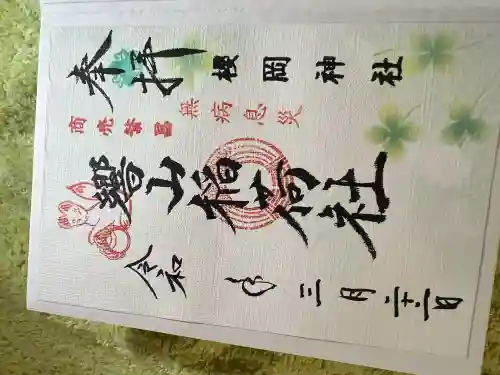 奉拝 櫻岡神社
商売繁昌
無病息災
響山稲荷社
令和 三月二十二日